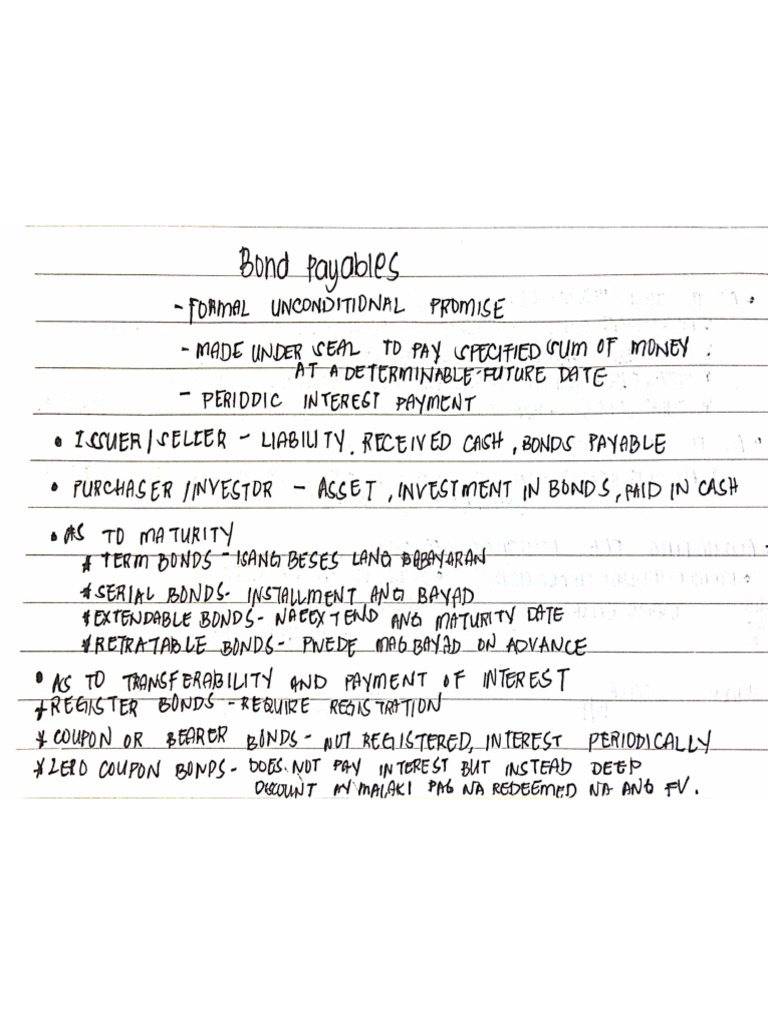 Bond Payables
- FORMAL UNCONDITIONAL PROMISE
- MADE UNDER SEAL TO PAY SPECIFIED SUM OF MONEY
AT A DETERMINABLE FUTURE DATE
- PERIODIC INTEREST PAYMENT
• ISSUER/SELLER - LIABILITY. RECEIVED CASH, BONDS PAYABLE
• PURCHASER/INVESTOR - ASSET, INVESTMENT IN BONDS, PAID IN CASH
• AS TO MATURITY
* TERM BONDS - ISANG BESES LANG BABAYARAN
* SERIAL BONDS- INSTALLMENT ANG BAYAD
* EXTENDABLE BONDS- NAEEXTEND ANG MATURITY DATE
* RETRATABLE BONDS- PWEDE MAGBAYAD ON ADVANCE
• AS TO TRANSFERABILITY AND PAYMENT OF INTEREST
* REGISTER BONDS - REQUIRE REGISTRATION
* COUPON OR BEARER BONDS- NOT REGISTERED, INTEREST PERIODICALLY
* ZERO COUPON BONDS- DOES NOT PAY INTEREST BUT INSTEAD DEEP
DISCOUNT MALAKI PAG NA REDEEMED NA ANG FV.